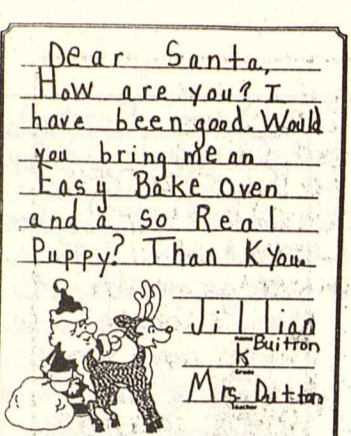 Dear Santa,
How are you? I
have been good. Would
you bring me an
Easy Bake Oven
and a so Real
Puppy? Than Kyou.
Jillian
Buitron
Name
K
Grade
Mrs Dutton
Teacher